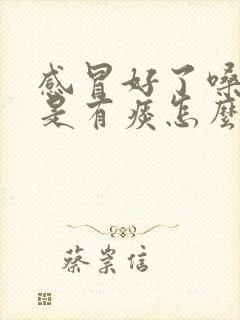 感冒好了嗓
是有痰怎麼
蔡崇信